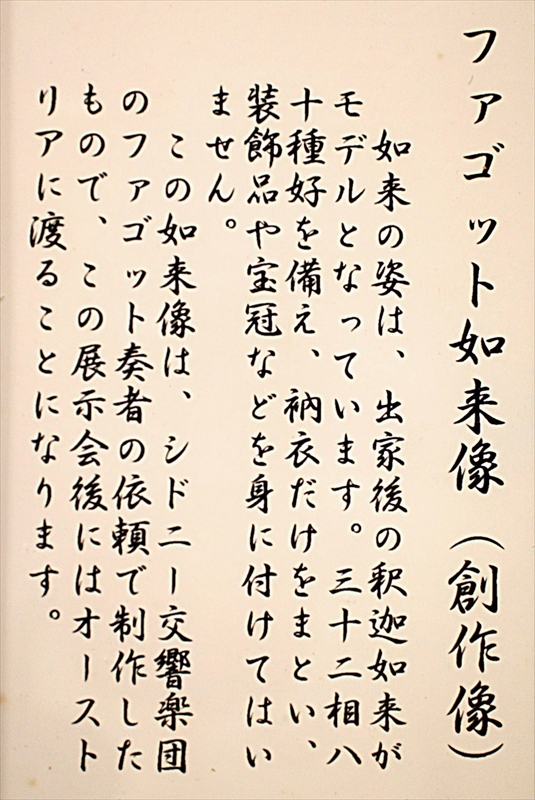 ファゴット如来像（創作像）
如来の姿は、出家後の釈迦如来が
モデルとなっています。三十二相八
十種好を備え、衲衣だけをまとい、
装飾品や宝冠などを身に付けてはい
ません。
この如来像は、シドニー交響楽団
のファゴット奏者の依頼で制作した
もので、この展示会後にはオースト
リアに渡ることになります。